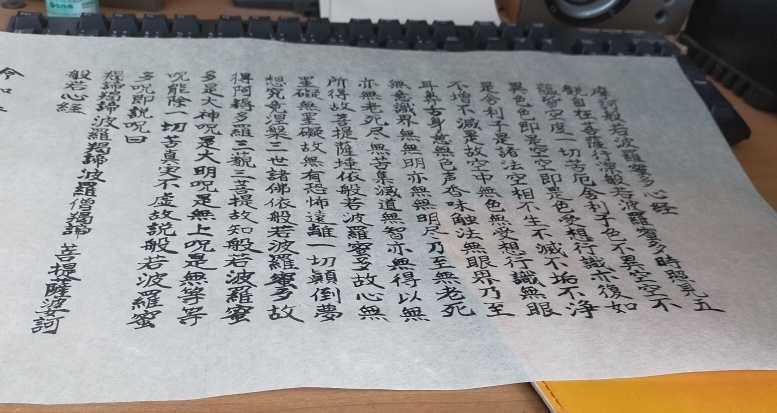 摩訶般若波羅蜜多心経
観自在菩薩行深般若波羅蜜多時照見五
蘊皆空度一切苦厄舎利子色不異空空不
異色色即是空空即是色受想行識亦復如
是舎利子是諸法空相不生不滅不垢不浄
不増不減是故空中無色無受想行識無眼
耳鼻舌身意無色声香味触法無眼界乃至
無意識界無無明亦無無明尽乃至無老死
亦無老死尽無苦集滅道無智亦無得以無
所得故菩提薩埵依般若波羅蜜多故心無
罣礙無罣礙故無有恐怖遠離一切顛倒夢
想究竟涅槃三世諸佛依般若波羅蜜多故
得阿耨多羅三藐三菩提故知般若波羅蜜
多是大神呪是大明呪是無上呪是無等等
呪能除一切苦真実不虚故説般若波羅蜜
多呪即説呪曰
羯諦羯諦 波羅羯諦 波羅僧羯諦 菩提薩婆訶
般若心経
令和